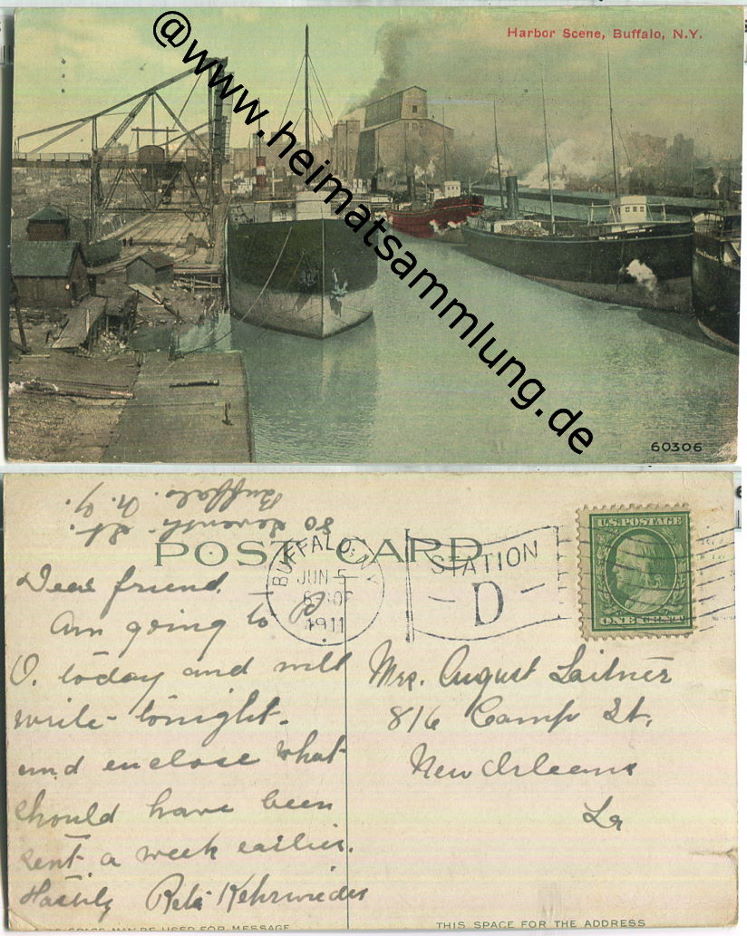 Harbor Scene, Buffalo, N.Y.
@www.heimatsammlung.de
60306
80 Seventh St.
Buffalo. N.Y.
POST CARD
BUFFALO, N.Y.
JUN 5
1911
STATION
D
U.S. POSTAGE
ONE CENT
Dear friend.
Am going to P.
O. today and will
write tonight.
and enclose what
should have been
sent a week earlier.
Hastily
Mrs. August Laitner
816 Camp St,
New Orleans
La
SPACE MAY BE USED FOR MESSAGE
THIS SPACE FOR THE ADDRESS